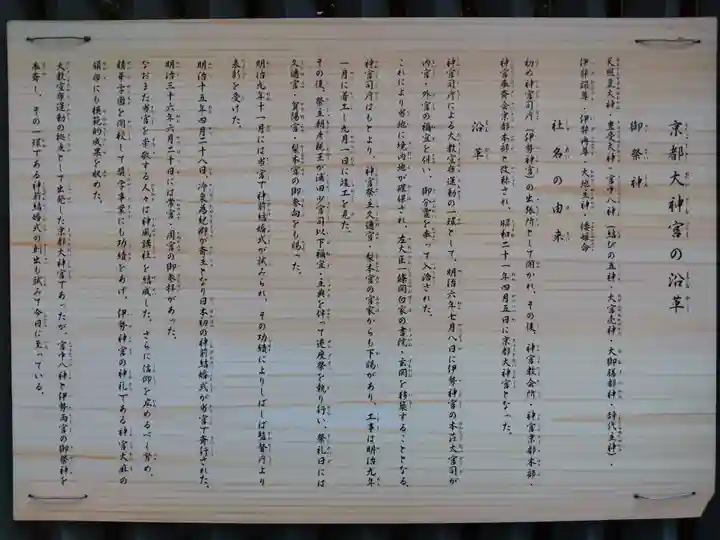 京都大神宮の沿革
御祭神
天照皇大神・豊受大神・宮中八神（結びの五神・大宮売神・大御膳都神・辞代主神）・
伊弉諾尊・伊弉冉尊・大地主神・倭姫命
社名の由来
初め神宮司庁（伊勢神宮）の出張所として開かれ、その後、神宮教会所・神宮京都本部・
神宮奉斎会京都本部と改称され、昭和二十一年四月五日に京都大神宮となった。
沿革
神宮司庁による大教宣布運動の一環として、明治六年七月八日に伊勢神宮の本荘大宮司が
内宮・外宮の禰宜を伴い、御分霊を奉って入洛された。
これにより当地に境内地が確保され、左大臣一條関白家の書院・玄関を移築することとなる。
神宮司庁はもとより、神宮祭主久邇宮・梨本宮の宮家からも下賜があり、工事は明治九年
一月に着工し九月一日に竣工を見た。
その後、祭主朝彦親王が浦田少宮司以下禰宜・主典を伴って遷座祭を執り行い、祭礼日には
久邇宮・賀陽宮・梨本宮の御参向をも賜った。
明治九年十一月には当宮で神前結婚式が試みられ、その功績によりしばしば監督庁より
表彰を受けた。
明治十五年四月二十八日、冷泉為紀卿が斎主となり日本初の神前結婚式が当宮で斎行された。
明治三十六年六月二十日には常宮・周宮の御参拝があった。
なおまた当宮を崇敬する人々は神風講社を結成した。さらに信仰を広めるべく努め、
精華学園を開校して奨学事業にも功績をあげ、伊勢神宮の神札である神宮大麻の
頒布にも模範的成果を収めた。
大教宣布運動の拠点として出発した京都大神宮であったが、宮中八神と伊勢両宮の御祭神を
奉斎し、その一環である神前結婚式の創出も試みて今日に至っている。